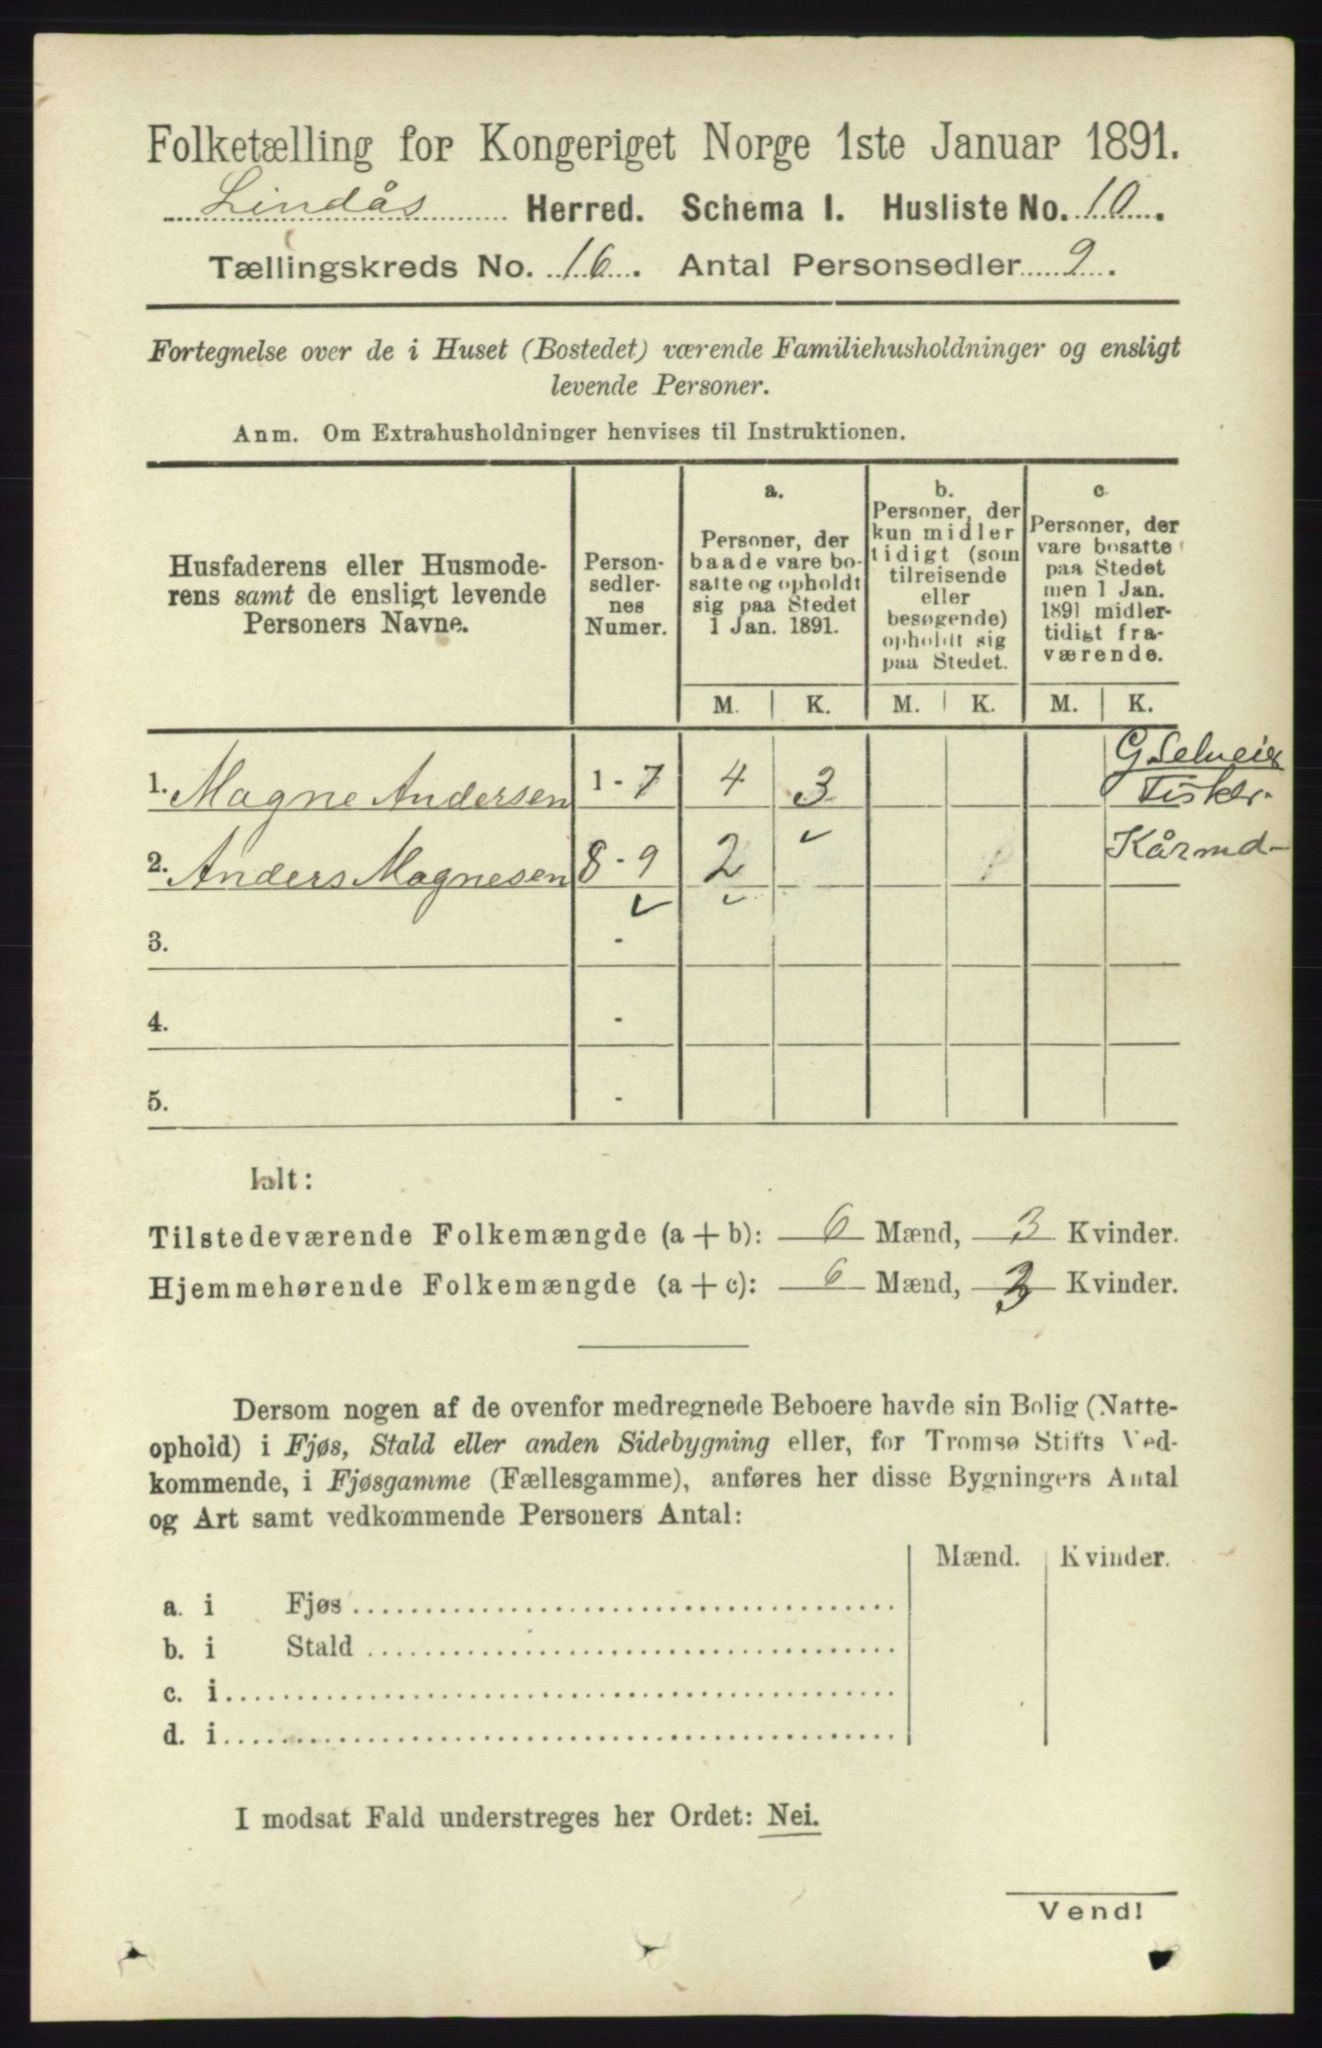 Folketælling for Kongeriget Norge 1ste Januar 1891.
Lindås Herred. Schema I. Husliste No. 10.
Tællingskreds No. 16. Antal Personsedler 9.
Fortegnelse over de i Huset (Bostedet) værende Familiehusholdninger og ensligt
levende Personer.
Anm. Om Extrahusholdninger henvises til Instruktionen.
Husfaderens eller Husmode-
rens samt de ensligt levende
Personers Navne.
Person-
sedler-
nes
Numer.
a.
Personer, der
baade vare bo-
satte og opholdt
sig paa Stedet
1 Jan. 1891.
b.
Personer, der
kun midler
tidigt (som
tilreisende
eller
besøgende)
opholdt sig
paa Stedet.
c
Personer, der
vare bosatte
paa Stedet
men 1 Jan.
1891 midler-
tidigt fra-
værende.
M. K. M. K. M. K.
1. Magne Andersen 1-7 4 3 G Selveier
Fisker
2. Anders Magnesen 8-9 2 Kårmd
3. -
4. -
5. -
Ialt:
Tilstedeværende Folkemængde (a + b): 6 Mænd, 3 Kvinder.
Hjemmehørende Folkemængde (a + c): 6 Mænd, 3 Kvinder.
Dersom nogen af de ovenfor medregnede Beboere havde sin Bolig (Natte-
ophold) i Fjøs, Stald eller anden Sidebygning eller, for Tromsø Stifts Ved-
kommende, i Fjøsgamme (Fællesgamme), anføres her disse Bygningers Antal
og Art samt vedkommende Personers Antal:
Mænd. Kvinder.
a. i Fjøs
b. i Stald
c. i
d. i
I modsat Fald understreges her Ordet: Nei.
Vend!